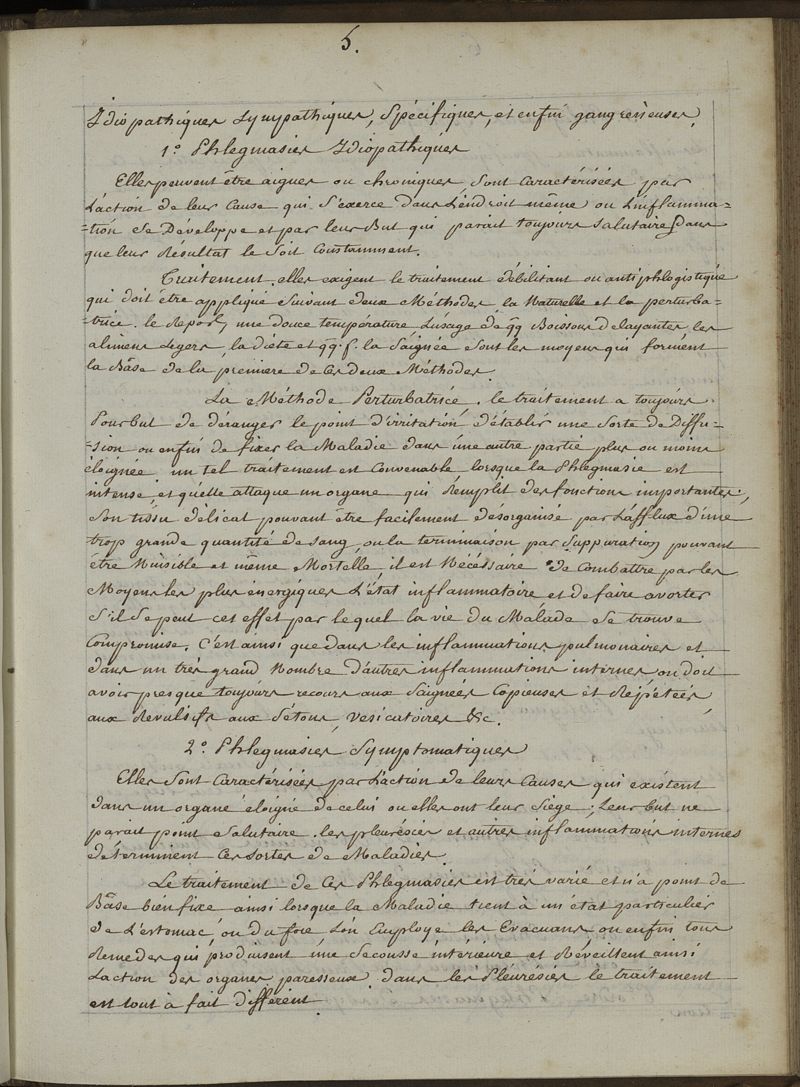 5.
Idiopathiques Sympathiques, Spécifiques, et enfin gangreneuses,
1.° Phlegmasies Idiopathiques
Elles peuvent être aigues ou chroniques, sont caractérisées par
L'action de leur cause qui s'exerce dans L'endroit même ou L'inflamma=
=tion se Developpe et par leur But qui parait toujours salutaire, sans
que leur Résultat le soit Constamment.
Traitement. elles exigent le traitement débilitant ou antiphlogistique
qui doit être appliqué suivant deux Méthodes, la Naturelle et la perturba=
=trice. le Repos, une douce température L'usage de qq Boissons delayantes, les
alimens Legers, la diète et qq. f. la Saignée sont les moyens qui forment
la Bâse de la premiere de Ces deux Méthodes.
La Méthode Perturbatrice. le traitement a toujours
Pour but de déranger le point d'irritation, d'établir une Sorte de Diffu=
=sion ou enfin de fixer la Maladie dans une autre partie plus ou moins
éloignée. un tel traitement est Convenable lorsque la Phlegmasie est
intense, et qu'elle attaque un organe qui Remplit des fonctions importantes,
Son tissu délicat pouvant être facilement désorganisé par L'afflux d'une
trop grande quantité de sang, ou la terminaison par Suppuration pouvant
être Nuisible et même Mortelle, il est Nécéssaire de Combattre par les
Moyens les plus énergiques L'état inflammatoire et de faire avorter
s'il se peut cet effet par lequel la vie du Malade se trouve
Compromise. C'est ainsi que dans les inflammations pulmonaires et
dans un très grand Nombre d'autres inflammations internes on doit
avoir presque toujours recours aux Saignées Copieuses et Répétées,
aux Revulsifs aux Sétons, vesicatoires &c.
2.° Phlegmasies Symptomatiques
Elles Sont Caractérisées par L'action de leurs Causes qui existent
dans un organe éloigné de celui ou elles ont leur Siège; Leur but ne
parait point Salutaire. les pleurésies et autres inflammations internes
déterminent Ces sortes de Maladies.
Le traitement de Ces Phlegmasies est très varié et n'a point de
Bâse bien fixe ainsi lorsque la Maladie tient à un état particulier
de L'estomac, ou du foie L'on Employe les Evacuans, ou enfin tous
Remedes qui produisent une Secousse intérieure et Réveillent ainsi
L'action des organes paresseux. dans les Pleurésies le traitement
est tout à fait différent